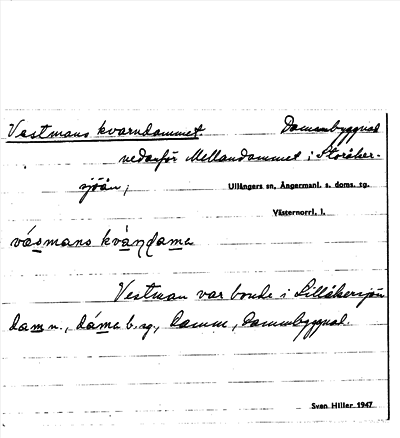 Vestmans kvarndammet. Dammbyggnad
nedanför Mellandammet i Storåker-
sjöån;
Ullångers sn, Ångermanl. s. doms. sg.
Västernorrl. l.
våsmans kvan̥dama
Vestman var bonde i Lillåkersjön
dam n., dáma b. sg., damm, dammbyggnad.
Sven Hiller 1947